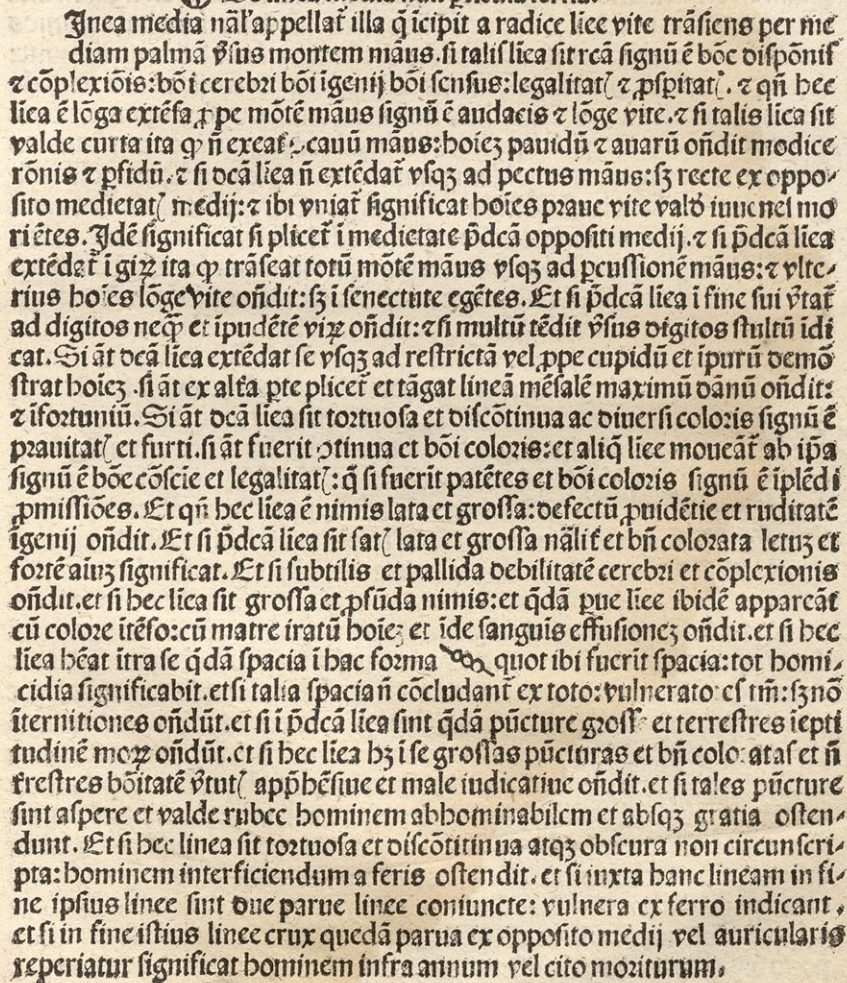 Jnea media nãl'appellat̃ illa q̃ ĩcipit a radice lĩee vite trãsiens per me
diam palmã ṽsus montem mãus.si talis lĩea sit rcã signũ ẽ bõe dispõnis
⁊ cõplexiõis:bõi cerebri bõi ĩgenij bõi sensus:legalitatꝭ ⁊ ꝓsp̱itatꝭ.⁊ qñ hec
lĩea ẽ lõga extẽsa ꝓpe mõtẽ mãus signũ ẽ audacis ⁊ lõge vite.⁊ si talis lĩea sit
valde curta ita ꝙ ñ exeat̃ ꝯcauũ mãus:hoĩeꝫ pauidũ ⁊ auarũ oñdit modice
rõnis ⁊ ꝑfidũ.⁊ si dcã lĩea ñ extẽdat̃ vsqꝫ ad pectus mãus:sꝫ recte ex oppo⸗
sito medietatꝭ medij:⁊ ibi vniat̃ significat hoĩes praue vite valđ iuuenes mo
riẽtes.Jdẽ significat si plicet̃ ĩ medietate p̃dcã oppositi medij.⁊ si p̃dcã lĩea
extẽdat̃ ĩ giꝝ ita ꝙ trãseat totũ mõtẽ mãus vsqꝫ ad ꝑcussionẽ mãus:⁊ vlte⸗
rius hoĩes lõge vite oñdit:sꝫ ĩ senectute egẽtes.Et si p̃dcã lĩea ĩ fine sui ṽtat̃
ad digitos neq̃ꝫ et ĩpudẽtẽ viꝝ oñdit:⁊ si multũ tẽdit ṽsus digitos stultũ ĩdi
cat.Si ãt dcã lĩea extẽdat se vsqꝫ ad restrictã vel ꝓpe cupidũ et ĩpurũ demõ
strat hoĩeꝫ.si ãt ex alt̃a ꝑte plicet̃ et tãgat lineã mẽsalẽ maximũ dãnũ oñdit:
⁊ ĩfortuniũ.Si ãt dcã lĩea sit tortuosa et discõtinua ac diuersi coloris signũ ẽ
prauitatꝭ et furti.si ãt fuerit ꝯtinua et bõi coloris:et aliq̃ lĩee moueãt̃ ab ip̃a
signũ ẽ bõe cõscĩe et legalitatꝭ:q̃ si fuerĩt patẽtes et bõi coloris signũ ẽ ĩplẽdi
ꝓmissiões.Et qñ hec lĩea ẽ nimis lata et grossa:defectũ ꝓuidẽtie et ruditatẽ
ĩgenij oñdit.Et si p̃dcã lĩea sit satꝭ lata et grossa nãlit̃ et bñ colorata letuꝫ et
fortẽ aĩuꝫ significat.Et si subtilis et pallida debilitatẽ cerebri et cõplexionis
oñdit.et si hec lĩea sit grossa et ꝓfũda nimis:et q̃dã ꝑue lĩee ibidẽ appareãt
cũ colore ĩtẽso:cũ matre iratũ hoĩeꝫ et ĩde sanguis effusioneꝫ oñdit.et si hec
lĩea hẽat ĩtra se q̃dã spacia ĩ hac forma quot ibi fuerĩt spacia:tot homi⸗
cidia significabit.et si talia spacia ñ cõcludant̃ ex toto:vulnerato es tm̃:sꝫ nõ
ĩternitiones oñdũt.et si ĩ p̃dcã lĩea sint q̃dã pũcture grosse et terrestres ĩepti
tudinẽ moꝝ oñdũt.et si hec lĩea hꝫ ĩ se grossas pũcturas et bñ coloratas et ñ
t̃restres bõitatẽ ṽtutꝭ app̃hẽsiue et male iudicatiue oñdit.et si tales pũcture
sint aspere et valde rubee hominem abhominabilem et absqꝫ gratia osten⸗
dunt.Et si hec linea sit tortuosa et discõtitinua atqꝫ obscura non circunscri⸗
pta:hominem interficiendum a feris ostendit.et si iuxta hanc lineam in fi⸗
ne ipsius linee sint due parue linee coniuncte:vulnera ex ferro indicant.
et si in fine istius linee crux quedã parua ex opposito medij vel auricularis
reperiatur significat hominem infra annum vel cito moriturum.